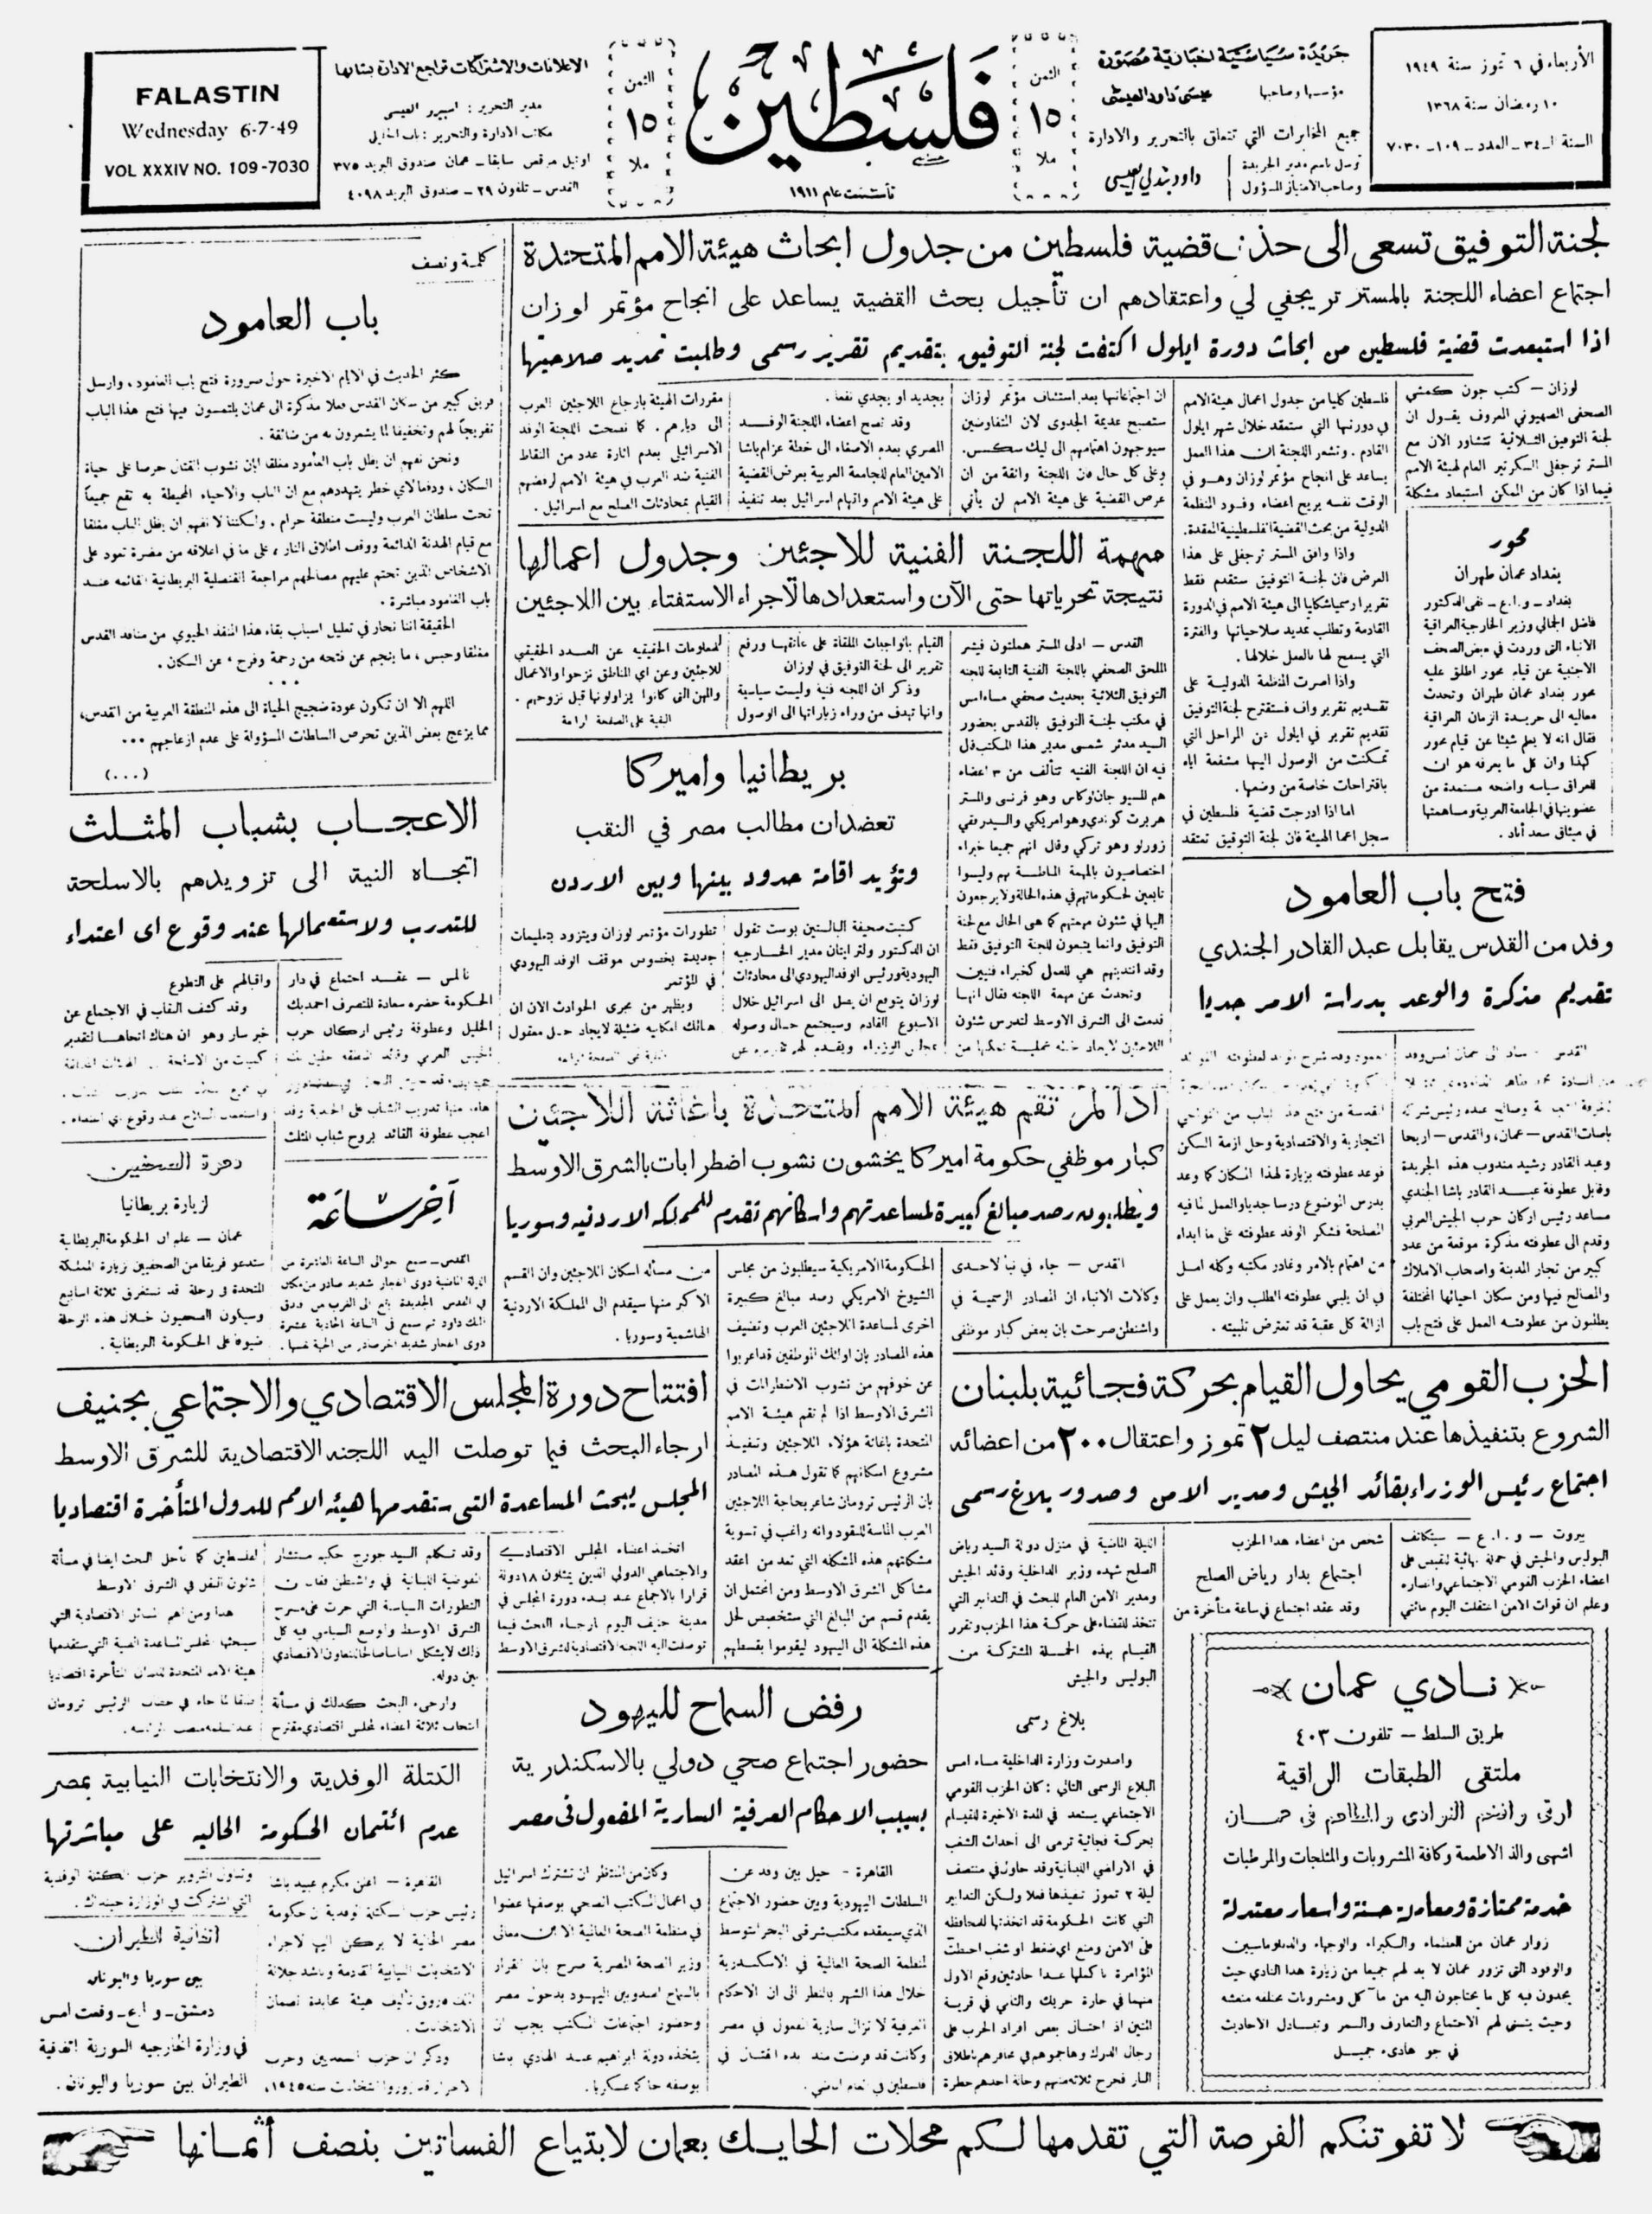 الأربعاء في ٦ تموز سنة ١٩٤٩
١٠ رمضان سنة ١٣٦٨
السنة الـ ٣٤ - العدد - ١٠٩ - ٧٠٣٠
جريدة سياسية اخبارية مصورة
مؤسسها وصاحبها عيسى داود العيسى
جميع المخابرات التي تتعلق بالتحرير والادارة
ترسل باسم مدير الجريدة
وصاحب الامتياز المسؤول
داود بندلي العيسى
الثمن
١٥
ملا
فلسطين
تأسست عام ١٩١١
الثمن
١٥
ملا
الاعلانات والاشتراكات تراجع الادارة بشأنها
مدير التحرير : اسبيرو العيسى
مكاتب الادارة والتحرير : باب الخليل
اوتيل مرقص سابقا - عمان صندوق البريد ٣٧٥
القدس - تلفون ٢٩ - صندوق البريد ٤٠٩٨
FALASTIN
Wednesday 6-7-49
VOL XXXIV NO. 109-7030
لجنة التوفيق تسعى الى حذف قضية فلسطين من جدول ابحاث هيئة الامم المتحدة
اجتماع اعضاء اللجنة بالمستر تريجفي لي واعتقادهم ان تأجيل بحث القضية يساعد على انجاح مؤتمر لوزان
اذا استبعدت قضية فلسطين من ابحاث دورة ايلول اكتفت لجنة التوفيق بتقديم تقرير رسمى وطلبت تمديد صلاحيتها
لوزان - كتب جون كمشي
الصحفي الصهيوني المعروف يقول ان
لجنة التوفيق الثلاثية تتشاور الآن مع
المستر ترجفلي السكرتير العام لهيئة الامم
فيما اذا كان من الممكن استبعاد مشكلة
فلسطين كليا من جدول اعمال هيئة الامم
في دورتها التي ستعقد خلال شهر ايلول
القادم . وتشعر اللجنة ان هذا العمل
يساعد على انجاح مؤتمر لوزان وهو في
الوقت نفسه يريح اعضاء وفود المنظمة
الدولية من بحث القضية الفلسطينية المعقدة.
واذا وافق المستر ترجفلي على هذا
العرض فان لجنة التوفيق ستقدم فقط
تقريرا رسميا شكليا الى هيئة الامم في الدورة
القادمة وتطلب تمديد صلاحياتها والفترة
التي يسمح لها بالعمل خلالها .
واذا اصرت المنظمة الدولية على
تقديم تقرير واف فستقترح لجنة التوفيق
تقديم تقرير في ايلول عن المراحل التي
تمكنت من الوصول اليها مشفعة اياه
باقتراحات خاصة من وضعها .
اما اذا ادرجت قضية فلسطين في
سجل اعمال الهيئة فان لجنة التوفيق تعتقد
ان اجتماعاتها بعد استئناف مؤتمر لوزان
ستصبح عديمة الجدوى لان المتفاوضين
سيوجهون اهتمامهم الى ليك سكسس.
وعلى كل حال فان اللجنة واثقة من ان
عرض القضية على هيئة الامم لن يأتي
بجديد او يجدي نفعا .
وقد نصح اعضاء اللجنة الوفد
المصري بعدم الاصغاء الى خطة عزام باشا
الامين العام للجامعة العربية بعرض القضية
على هيئة الامم واتهام اسرائيل بعد تنفيذ
مقررات الهيئة بارجاع اللاجئين العرب
الى ديارهم . كما نصحت اللجنة الوفد
الاسرائيلي بعدم اثارة عدد من النقاط
الفنية ضد العرب في هيئة الامم لرفضهم
القيام بمحادثات الصلح مع اسرائيل .
محور
بغداد عمان طهران
بغداد - و.ا.ع - نفى الدكتور
فاضل الجمالي وزير الخارجية العراقية
الانباء التى وردت في بعض الصحف
الاجنبية عن قيام محور اطلق عليه
محور بغداد عمان طهران وتحدث
معاليه الى جريدة الزمان العراقية
فقال انه لا يعلم شيئا عن قيام محور
كهذا وان كل ما يعرفه هو ان
للعراق سياسه واضحه مستمدة من
عضويتها في الجامعة العربية ومساهمتها
في ميثاق سعد آباد .
كلمة ونصف
باب العامود
كثر الحديث في الايام الاخيرة حول ضرورة فتح باب العامود ، وارسل
فريق كبير من سكان القدس فعلا مذكرة الى عمان يلتمسون فيها فتح هذا الباب
تفريجاً لهم وتخفيفا لما يشعرون به من ضائقة .
ونحن نفهم ان يظل باب العامود مغلقا ابان نشوب القتال حرصا على حياة
السكان ، ودفعا لاي خطر يتهددهم مع ان الباب والاحياء المحيطة به تقع جميعاً
تحت سلطان العرب وليست منطقة حرام . ولكننا لا نفهم ان يظل الباب مغلقا
مع قيام الهدنة الدائمة ووقف اطلاق النار ، على ما في اغلاقه من مضرة تعود على
الاشخاص الذين تحتم عليهم مصالحهم مراجعة القنصلية البريطانية القائمه عند
باب العامود مباشرة .
الحقيقة اننا نحار في تعليل اسباب بقاء هذا المنفذ الحيوي من منافذ القدس
مغلقا وحبس ، ما ينجم عن فتحه من رحمة وفرج ، عن السكان .
• • •
اللهم الا ان تكون عودة ضجيج الحياة الى هذه المنطقة العربية من القدس،
مما يزعج بعض الذين تحرص السلطات المسؤولة على عدم ازعاجهم ...
(...)
مهمة اللجنة الفنية للاجئين وجدول اعمالها
نتيجة تحرياتها حتى الآن واستعدادها لاجراء الاستفتاء بين اللاجئين
القدس - ادلى المستر هملتون فيشر
الملحق الصحفي باللجنة الفنية التابعة للجنه
التوفيق الثلاثية بحديث صحفي مساء امس
في مكتب لجنة التوفيق بالقدس بحضور
السيد مدثر شمسي مدير هذا المكتب قال
فيه ان اللجنة الفنيه تتألف من ٣ اعضاء
هم المسيو جان لوكاس وهو فرنسي والمستر
هربرت كوندي وهو امريكي والسيد رفقي
زورلو وهو تركي وقال انهم جميعا خبراء
اختصاصيون بالمهمة المناطة بهم وليسوا
تابعين لحكوماتهم في هذه الحالة ولا يرجعون
اليها في شئون مهمتهم كما هى الحال مع لجنة
التوفيق وانما يتبعون للجنة التوفيق فقط
وقد انتدبتهم هي للعمل كخبراء فنيين
وتحدث عن مهمة اللجنه فقال انها
قدمت الى الشرق الاوسط لتدرس شئون
القيام بالواجبات الملقاة على عاتقها ورفع
تقرير الى لجنة التوفيق في لوزان
وذكر ان اللجنه فنية وليست سياسية
وانها تهدف من وراء زياراتها الى الوصول
لمعلومات الحقيقيه عن العدد الحقيقي
للاجئين وعن اي المناطق نزحوا والاعمال
والمهن التى كانوا يزاولونها قبل نزوحهم .
البقية على الصفحة الرابعة
بريطانيا واميركا
تعضدان مطالب مصر في النقب
وتؤيد اقامة حدود بينها وبين الاردن
كتبت صحيفة البالستين بوست تقول
ان الدكتور ولتر ايتان مدير الخارجيه
اليهودية ورئيس الوفد اليهودي الى محادثات
لوزان يتوقع ان يصل الى اسرائيل خلال
الاسبوع القادم وسيجتمع حال وصوله
تطورات مؤتمر لوزان ويتزود بتعليمات
جديدة بخصوص موقف الوفد اليهودي
في المؤتمر
ويظهر من مجرى الحوادث الان ان
هنالك امكانيه ضئيلة لايجاد حل معقول
الاعجاب بشباب المثلث
اتجاه النية الى تزويدهم بالاسلحة
للتدرب ولاستعمالها عند وقوع اى اعتداء
نابلس - عقد اجتماع في دار
الحكومة حضره سعادة المتصرف احمد بك
الخليل وعطوفة رئيس اركان حرب
اعجب عطوفة القائد بروح شباب المثلث
واقبالهم على التطوع
وقد كشف النقاب في الاجتماع عن
خبر سار وهو ان هناك اتجاها لتقدير
واستعمال السلاح عند وقوع اي اعتداء .
دعوة الصحفيين
لزيارة بريطانيا
عمان - علم ان الحكومة البريطانية
ستدعو فريقا من الصحفيين لزيارة المملكة
المتحدة في رحلة قد تستغرق ثلاثة اسابيع
وسيكون الصحفيون خلال هذه الرحلة
ضيوفا على الحكومة البريطانية .
آخر ساعة
فتح باب العامود
وفد من القدس يقابل عبد القادر الجندي
تقديم مذكرة والوعد بدراسة الامر جديا
باصات القدس - عمان، والقدس - اريحا
وعبد القادر رشيد مندوب هذه الجريدة
وقابل عطوفة عبد القادر باشا الجندي
مساعد رئيس اركان حرب الجيش العربي
وقدم الى عطوفته مذكرة موقعة من عدد
كبير من تجار المدينة واصحاب الاملاك
والمصالح فيها ومن سكان احيائها المختلفة
يطلبون من عطوفته العمل على فتح باب
التجارية والاقتصادية وحل ازمة السكن
فوعد عطوفته بزيارة لهذا المكان كما وعد
بدرس الموضوع درسا جديا والعمل لما فيه
المصلحة فشكر الوفد عطوفته على ما ابداه
من اهتمام بالامر وغادر مكتبه وكله امل
في ان يلبي عطوفته الطلب وان يعمل على
ازالة كل عقبة قد تعترض تلبيته .
اذا لم تقم هيئة الامم المتحدة باغاثة اللاجئين
كبار موظفي حكومة اميركا يخشون نشوب اضطرابات بالشرق الاوسط
ويطلبون رصد مبالغ كبيرة لمساعدتهم واسكانهم تقدم للمملكه الاردنيه وسوريا
القدس - جاء في نبأ لاحدى
وكالات الانباء ان المصادر الرسمية في
واشنطن صرحت بان بعض كبار موظفى
الحكومة الامريكية سيطلبون من مجلس
الشيوخ الامريكي رصد مبالغ كبيرة
اخرى لمساعدة اللاجئين العرب وتضيف
هذه المصادر بان اولئك الموظفين قد اعربوا
عن خوفهم من نشوب الاضطرابات في
الشرق الاوسط اذا لم تقم هيئة الامم
المتحدة باغاثة هؤلاء اللاجئين وتنفيذ
مشروع اسكانهم كما تقول هذه المصادر
بان الرئيس ترومان شاعر بحاجة اللاجئين
العرب الماسة للنقود وانه راغب في تسوية
مشكلتهم هذه المشكله التي تعد من اعقد
مشاكل الشرق الاوسط ومن المحتمل ان
يقدم قسم من المبالغ التي ستخصص لحل
هذه المشكلة الى اليهود ليقوموا بقسطهم
من مسأله اسكان اللاجئين وان القسم
الاكبر منها سيقدم الى المملكة الاردنية
الهاشمية وسوريا .
الحزب القومي يحاول القيام بحركة فجائية بلبنان
الشروع بتنفيذها عند منتصف ليل ٢ تموز واعتقال ٢٠٠ من اعضائه
اجتماع رئيس الوزراء بقائد الجيش ومدير الامن وصدور بلاغ رسمى
بيروت - و.ا.ع - سيتكاتف
البوليس والجيش في حملة نهائية للقبض على
اعضاء الحزب القومي الاجتماعي وانصاره
وعلم ان قوات الامن اعتقلت اليوم مائتي
شخص من اعضاء هذا الحزب
اجتماع بدار رياض الصلح
وقد عقد اجتماع في ساعة متأخرة من
الليلة الماضية في منزل دولة السيد رياض
الصلح شهده وزير الداخلية وقائد الجيش
ومدير الامن العام للبحث في التدابير التي
تتخذ للقضاء على حركة هذا الحزب وتقرر
القيام بهذه الحملة المشتركة من
البوليس والجيش
بلاغ رسمى
واصدرت وزارة الداخلية مساء امس
البلاغ الرسمى التالي : كان الحزب القومي
الاجتماعي يستعد في المدة الاخيرة للقيام
بحركة فجائية ترمى الى أحداث الشغب
في الاراضي اللبنانية وقد حاول في منتصف
ليلة ٢ تموز تنفيذها فعلا ولكن التدابير
التي كانت الحكومة قد اتخذتها لمحافظة
على الامن ومنع اي ضغط او شغب احبطت
المؤامرة باكملها عدا حادثين وقع الاول
منهما في حارة حريك والثاني في قرية
المتين اذ احتل بعض افراد الحزب على
رجال الدرك وهاجموهم في مخافرهم باطلاق
النار فجرح ثلاثة منهم وحالة احدهم خطرة
افتتاح دورة المجلس الاقتصادي والاجتماعي بجنيف
ارجاء البحث فيما توصلت اليه اللجنه الاقتصادية للشرق الاوسط
المجلس يبحث المساعدة التى ستقدمها هيئة الامم للدول المتأخرة اقتصاديا
اتخذ اعضاء المجلس الاقتصادي
والاجتماعي الدولي الذين يمثلون ١٨ دولة
قرارا بالاجماع عند بدء دورة المجلس في
مدينة جنيف اليوم ارجاء البحث فيما
توصلت اليه اللجنه الاقتصادية للشرق الاوسط
وقد تكلم السيد جورج حكيم مستشار
المفوضية اللبنانية في واشنطن فقال ان
التطورات السياسة التي جرت على مسرح
الشرق الاوسط والوضع السياسي فيه كل
ذلك لا يشكل اساسا صالحا للتعاون الاقتصادي
بين دوله.
رفض السماح لليهود
حضور اجتماع صحي دولي بالاسكندرية
بسبب الاحكام العرفية السارية المفعول فى مصر
القاهرة - حيل بين وفد عن
السلطات اليهودية وبين حضور الاجتماع
الذي سيعقده مكتب شرقي البحر المتوسط
لمنظمة الصحة العالمية في الاسكندرية
خلال هذا الشهر بالنظر الى ان الاحكام
العرفية لا تزال سارية المفعول في مصر
وكانت قد فرضت منذ بدء القتال في
فلسطين في العام الماضي .
وكان من المنتظر ان تشترك اسرائيل
في اعمال المكتب الصحي بوصفها عضوا
في منظمة الصحة العالمية الا ان معالى
وزير الصحة المصرية صرح بان القرار
بالسماح لمندوبين اليهود بدخول مصر
وحضور اجتماعات المكتب يجب ان
يتخذه دولة ابراهيم عبد الهادي باشا
بوصفه حاكما عسكريا .
الكتلة الوفدية والانتخابات النيابية بمصر
عدم ائتمان الحكومة الحاليه على مباشرتها
القاهرة - اعلن مكرم عبيد باشا
رئيس حزب الكتلة الوفدية ان حكومة
مصر الحالية لا يركن اليها لاجراء
الانتخابات النيابية القادمة وناشد جلالة
الملك فاروق تأليف هيئة محايدة لضمان
الانتخابات .
اتفاقية الطيران
بين سوريا واليونان
دمشق - و.ا.ع - وقعت امس
في وزارة الخارجيه السورية اتفاقية
الطيران بين سوريا واليونان .
نادي عمان
طريق السلط - تلفون ٤٠٣
ملتقى الطبقات الراقية
ارقى وافخم النوادى والمطاعم فى عمان
اشهى والذ الاطعمة وكافة المشروبات والمثلجات والمرطبات
خدمة ممتازة ومعاملة حسنة واسعار معتدلة
زوار عمان من العظماء والكبراء والوجهاء والدبلوماسيين
والوفود التى تزور عمان لا بد لهم جميعا من زيارة هذا النادي حيث
يجدون فيه كل ما يحتاجون اليه من مآكل ومشروبات مختلفه منعشه
وحيث يتسنى لهم الاجتماع والتعارف والسمر وتبادل الاحاديث
في جو هادىء جميل
لا تفوتنكم الفرصة التي تقدمها لكم محلات الحايك بعمان لابتياع الفساتين بنصف أثمانها